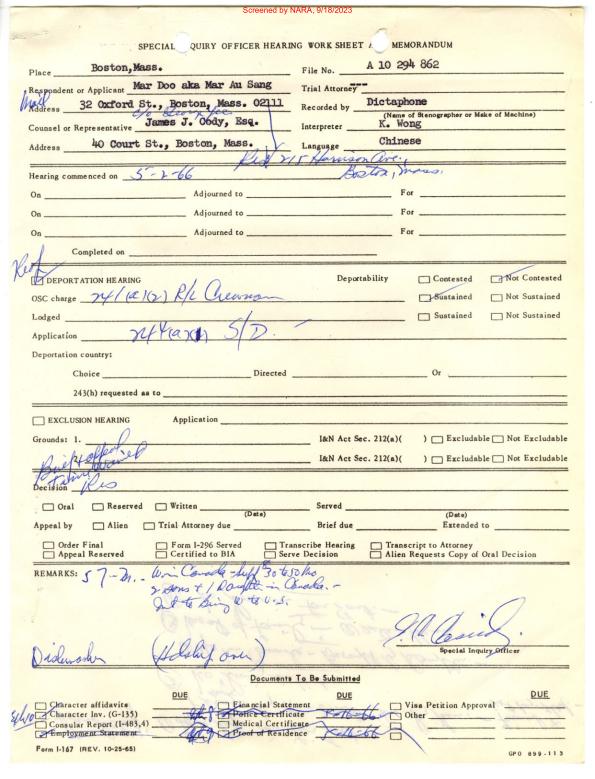 Screened by NARA, 9/18/2023
SPECIAL QUIRY OFFICER HEARING WORK SHEET A MEMORANDUM
Place Boston, Mass. File No. A 10 294 862
Respondent or Applicant Mar Doo aka Mar Au Sang Trial Attorney ---
Mail
Address 32 Oxford St., Boston, Mass. 02111 Recorded by Dictaphone
(Name of Stenographer or Make of Machine)
c/o
Counsel or Representative James J. Oddy, Esq. Interpreter K. Wong
Address 40 Court St., Boston, Mass. Language Chinese
Res 215 Harrison Ave.,
Boston, Mass.
Hearing commenced on 5-2-66
On Adjourned to For
On Adjourned to For
On Adjourned to For
Completed on
DEPORTATION HEARING Deportability Contested Not Contested
OSC charge 241(a)(2) R/L Crewman Sustained Not Sustained
Lodged Sustained Not Sustained
Application 244(a)(1) S/D.
Deportation country:
Choice Directed Or
243(h) requested as to
EXCLUSION HEARING Application
Grounds: 1. I&N Act Sec. 212(a)( ) Excludable Not Excludable
2. I&N Act Sec. 212(a)( ) Excludable Not Excludable
Brief & appeal
waived
Decision Res
Oral Reserved Written Served
(Date) (Date)
Appeal by Alien Trial Attorney due Brief due Extended to
Order Final Form I-296 Served Transcribe Hearing Transcript to Attorney
Appeal Reserved Certified to BIA Serve Decision Alien Requests Copy of Oral Decision
REMARKS: 57-M.- W in Canada - $30 to 50 mo
2 sons + 1 daughter in Canada. -
Int to bring W to U.S.
Special Inquiry Officer
Dishwasher (over)
Documents To Be Submitted
DUE DUE DUE
Character affidavits Financial Statement Visa Petition Approval
Character Inv. (G-135) Police Certificate Other
Consular Report (I-483,4) Medical Certificate
Employment Statement Proof of Residence
Form I-167 (REV. 10-25-65) GPO 899-113